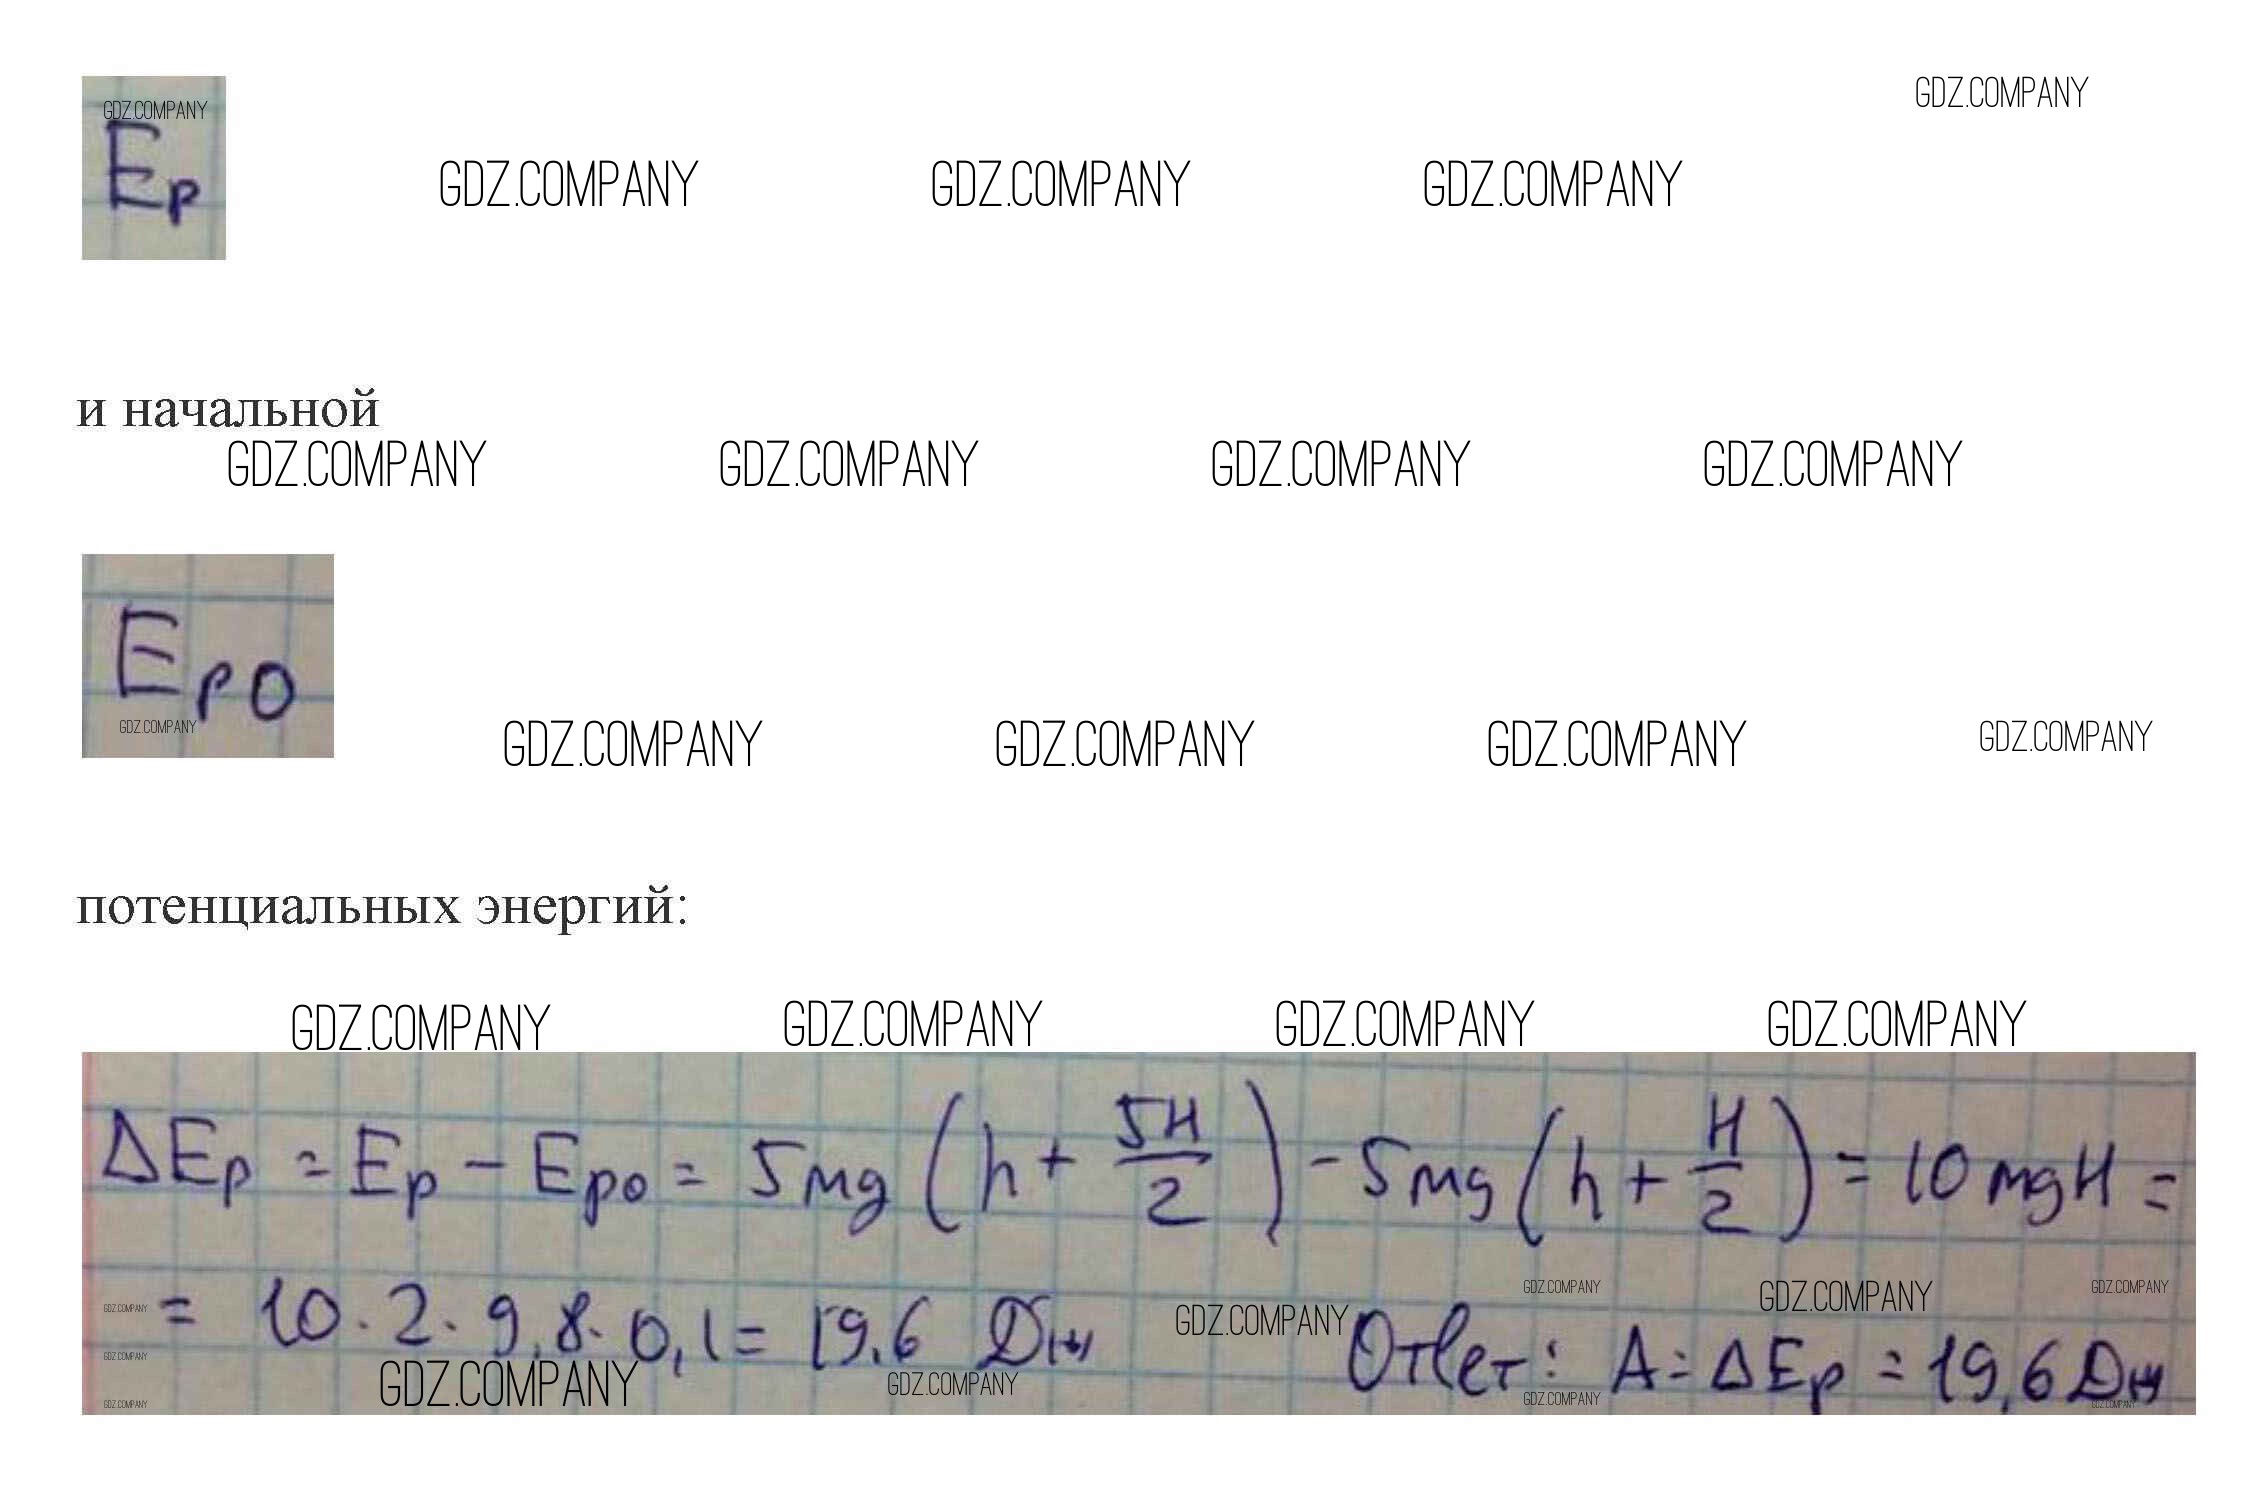 GDZ.COMPANY GDZ.COMPANY
E_p GDZ.COMPANY GDZ.COMPANY GDZ.COMPANY
и начальной
GDZ.COMPANY GDZ.COMPANY GDZ.COMPANY GDZ.COMPANY
E_p0
GDZ.COMPANY GDZ.COMPANY GDZ.COMPANY GDZ.COMPANY GDZ.COMPANY
потенциальных энергий:
GDZ.COMPANY GDZ.COMPANY GDZ.COMPANY GDZ.COMPANY
ΔE_p = E_p − E_p0 = 5mg(h + 5H/2) − 5mg(h + H/2) = 10mgH =
GDZ.COMPANY GDZ.COMPANY GDZ.COMPANY
GDZ.COMPANY = 10·2·9,8·0,1 = 19,6 Дж GDZ.COMPANY Ответ: A = ΔE_p = 19,6 Дж
GDZ.COMPANY
GDZ.COMPANY GDZ.COMPANY GDZ.COMPANY GDZ.COMPANY GDZ.COMPANY